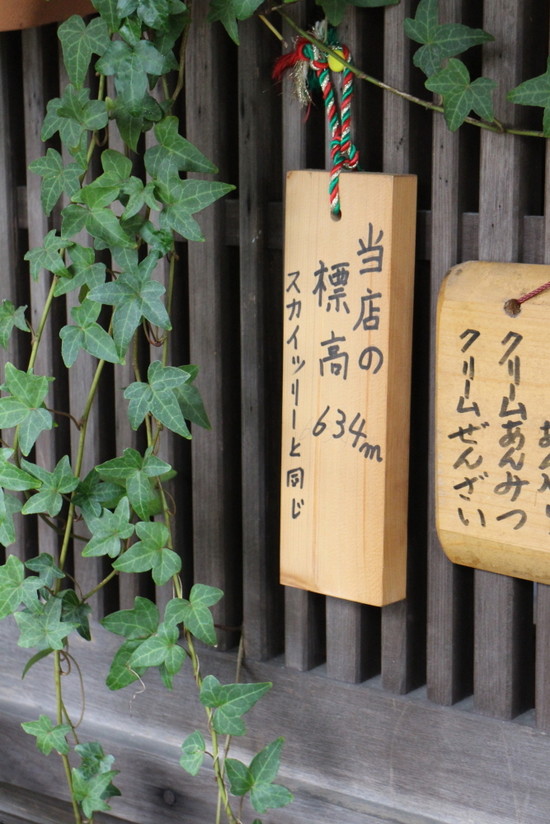 当店の
標高 634m
スカイツリーと同じ
クリームあんみつ
クリームぜんざい